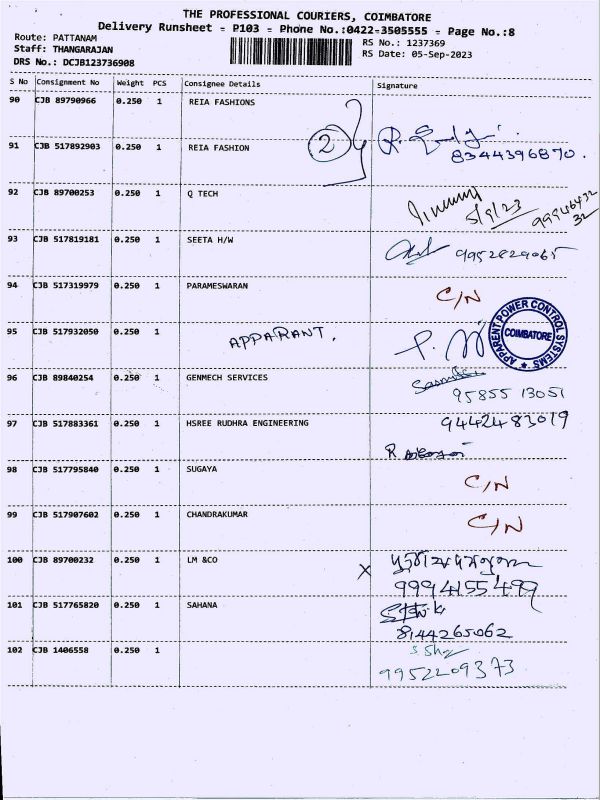 THE PROFESSIONAL COURIERS, COIMBATORE
Delivery Runsheet = P103 = Phone No.:0422-3505555 = Page No.:8
Route: PATTANAM
Staff: THANGARAJAN
DRS No.: DCJB123736908
RS No.: 1237369
RS Date: 05-Sep-2023
S No Consignment No Weight PCS Consignee Details Signature
90 CJB 89790966 0.250 1 REIA FASHIONS
2
91 CJB 517892903 0.250 1 REIA FASHION
8344396870.
92 CJB 89700253 0.250 1 Q TECH
5/9/23
93 CJB 517819181 0.250 1 SEETA H/W
9952829065
94 CJB 517319979 0.250 1 PARAMESWARAN C/N
95 CJB 517932050 0.250 1 APPARANT.
APPARENT POWER CONTROL SYSTEMS
COIMBATORE
96 CJB 89840254 0.250 1 GENMECH SERVICES
95855 13051
97 CJB 517883361 0.250 1 HSREE RUDHRA ENGINEERING 9442483019
98 CJB 517795840 0.250 1 SUGAYA C/N
99 CJB 517907602 0.250 1 CHANDRAKUMAR C/N
100 CJB 89700232 0.250 1 LM &CO X
9994155499
101 CJB 517765820 0.250 1 SAHANA
8144265062
102 CJB 1406558 0.250 1
9952209373